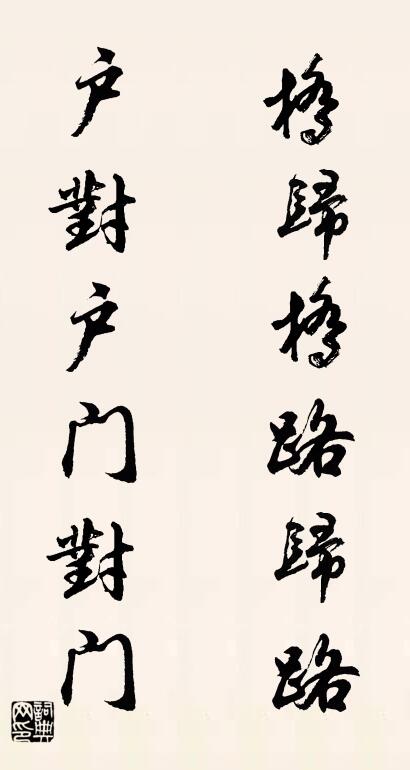 橋歸橋路歸路
户對户门對门
詞典网印